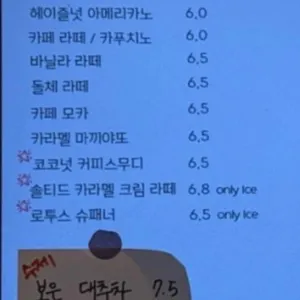 헤이즐넛 아메리카노 6,0
카페 라떼 / 카푸치노 6,0
바닐라 라떼 6,5
돌체 라떼 6,5
카페 모카 6,5
카라멜 마끼야또 6,5
코코넛 커피스무디 6,5
솔티드 카라멜 크림 라떼 6,8 only Ice
로투스 슈패너 6,5 only Ice
수제
보은 대추차 7.5